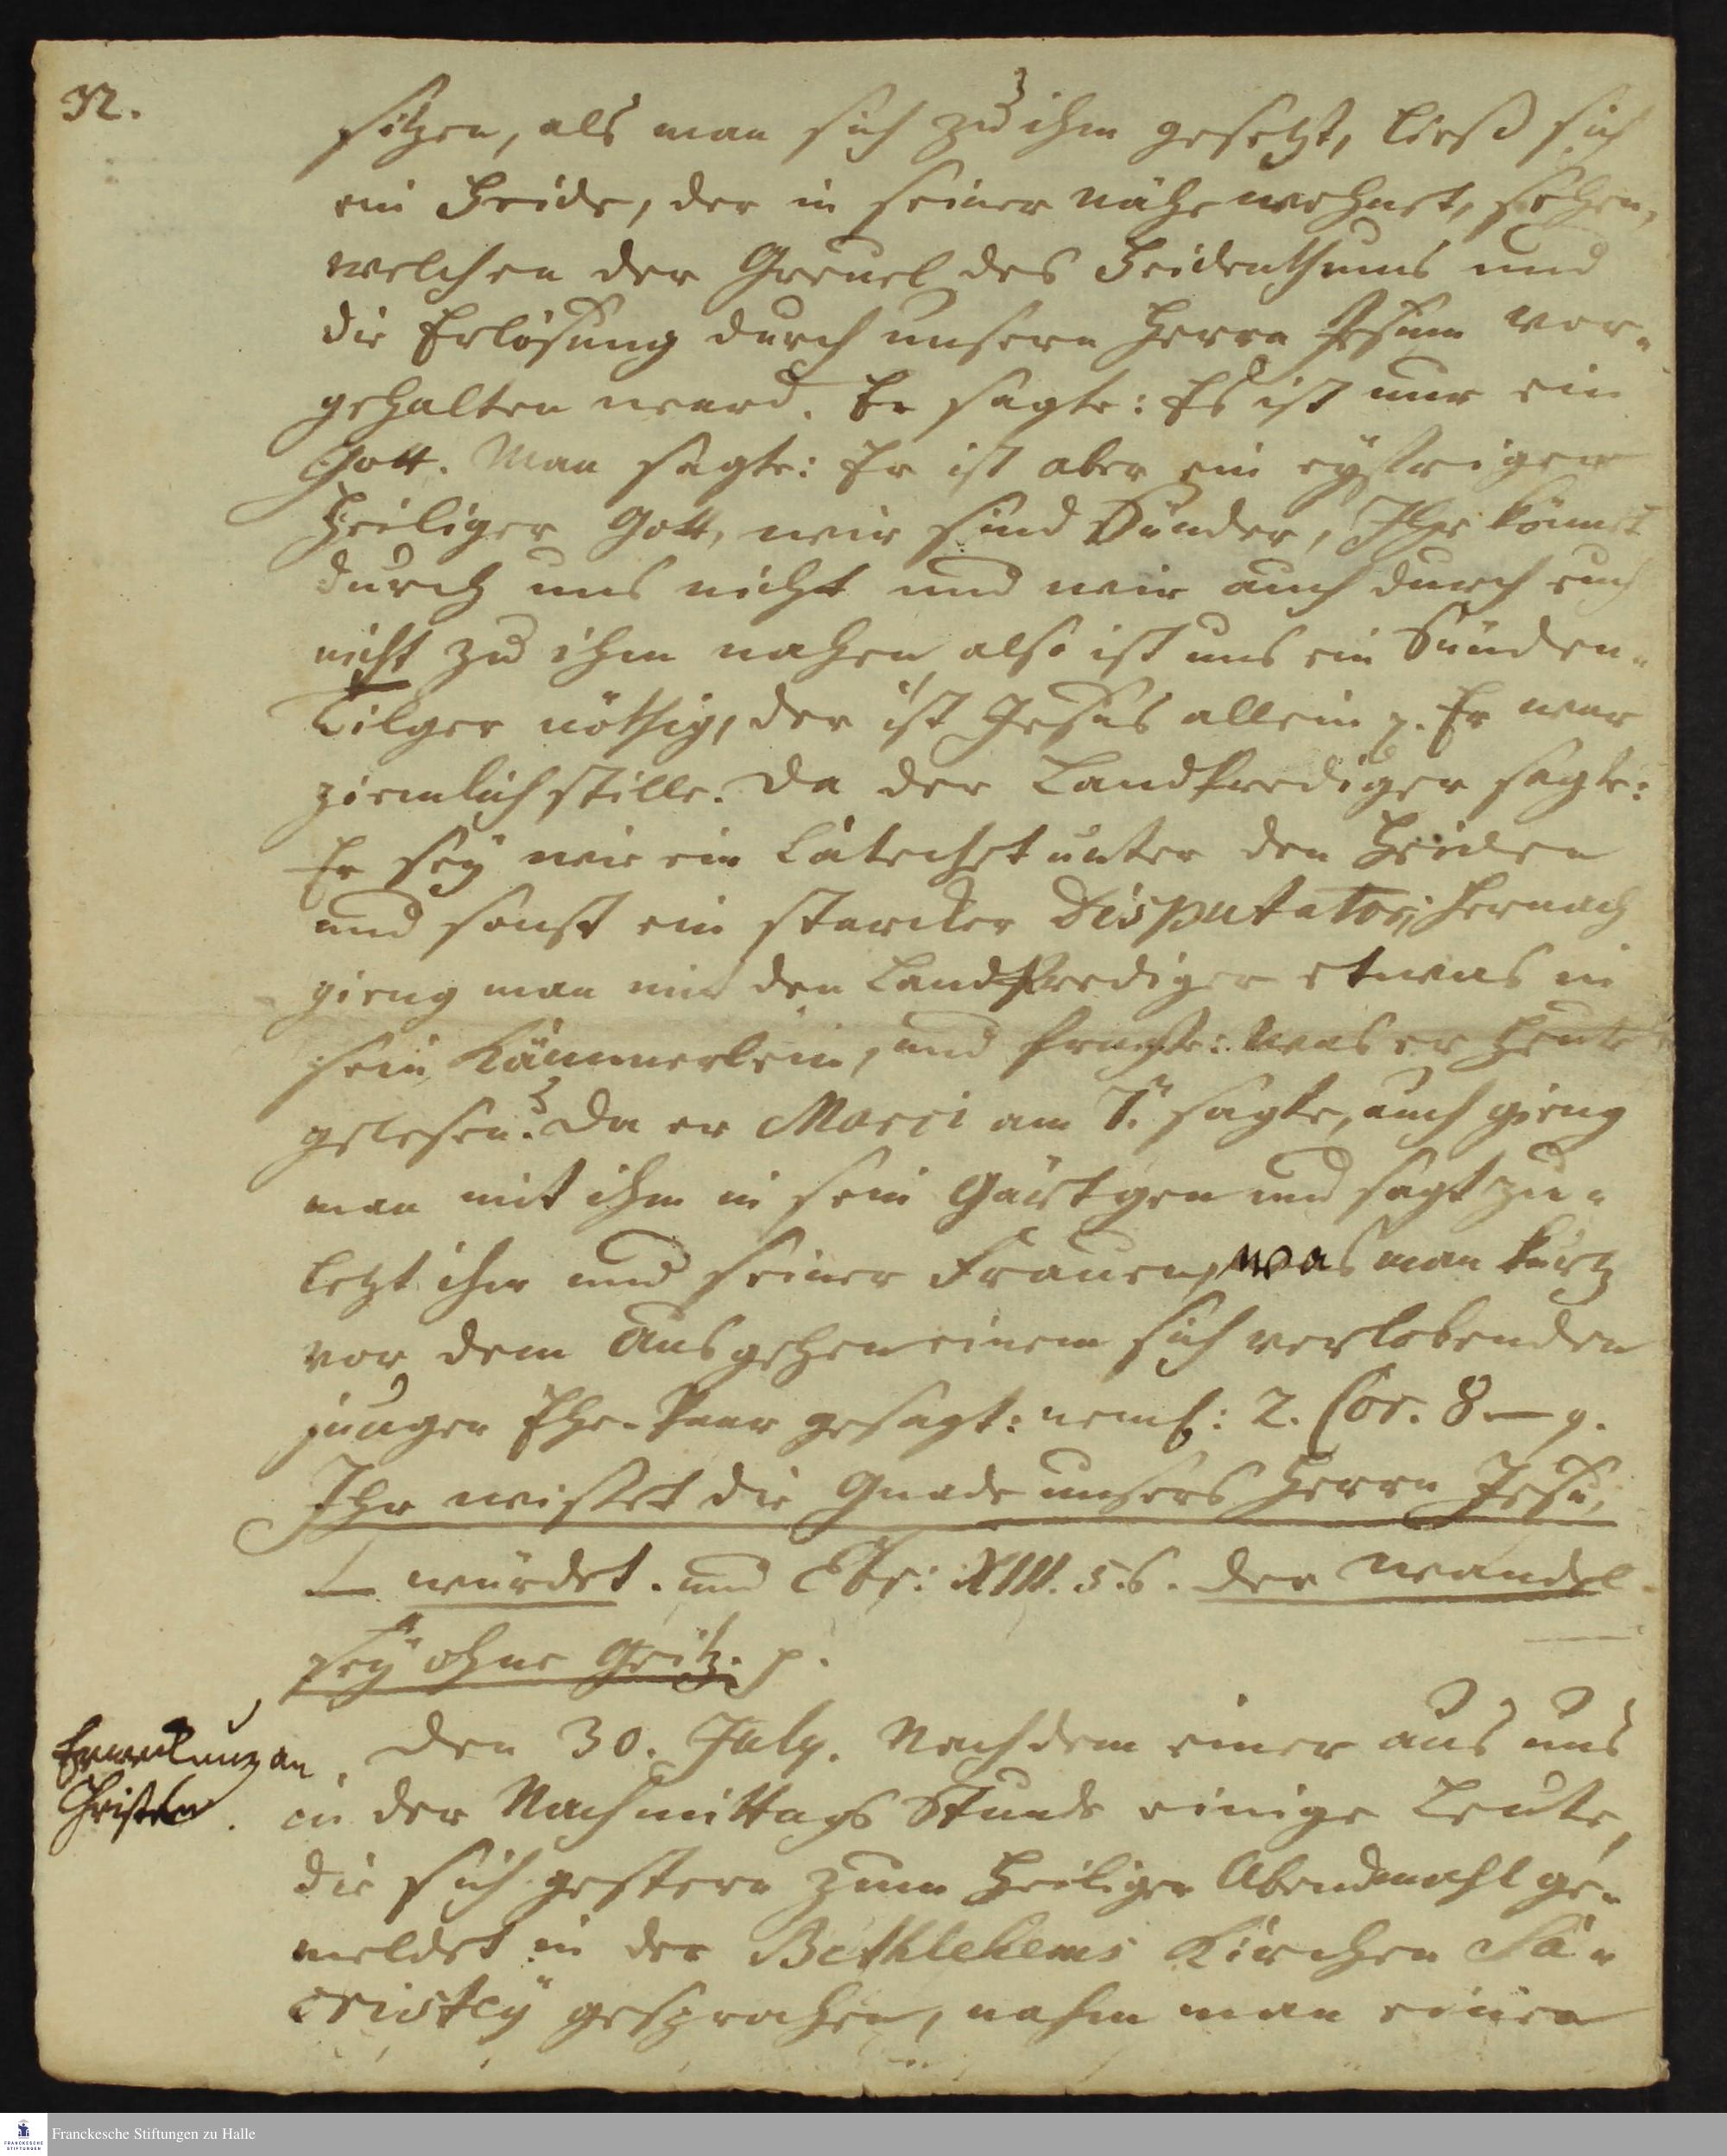 32.
sitzen, als man sich zu ihm gesetzt, ließ sich
ein Heide, der in seiner nähe wohnet, sehen,
welchen der Greuel des Heidenthums und
die Erlösung durch unsern Herrn Jesum vor-
gehalten ward. Er sagte: Es ist nur ein
Gott. Man sagte: Er ist aber ein eyfriger
Heiliger Gott, wir sind Sünder, Ihr könnet
durch uns nicht und wir auch durch euch
nicht zu ihm nahen, also ist uns ein Sünden-
Tilger nöthig, der ist Jesus allein p. Er war
ziemlich stille. Da der Landprediger sagte:
Er sey wie ein Catechet unter den Heiden
und sonst ein starcker Disputator; hernach
gieng man mit den Landprediger etwas in
sein Kämmerlein, und fragte: was er heute
gelesen? Da er Marci am 7. sagte, auch gieng
man mit ihm in sein Gärtgen und sagt zu-
letzt ihm und seiner Frauen, was man kurtz
vor dem Ausgehen einem sich verlobenden
jungen Ehe-Paar gesagt: neml: 2. Cor. 8 — 9.
Ihr wisset die Gnade unsers Herrn Jesu,
— würdet. und Ebr: XIII. 5.6. der wandel
sey ohne Geitz. p.
Erweckung an
Christen.
den 30. July. Nachdem einer aus uns
in der Nachmittags Stunde einige Leute,
die sich gestern zum Heiligen Abendmahl ge-
meldet in der Bethlehems Kirchen Sa-
cristey gesprochen, nahm man einen
Franckesche Stiftungen zu Halle